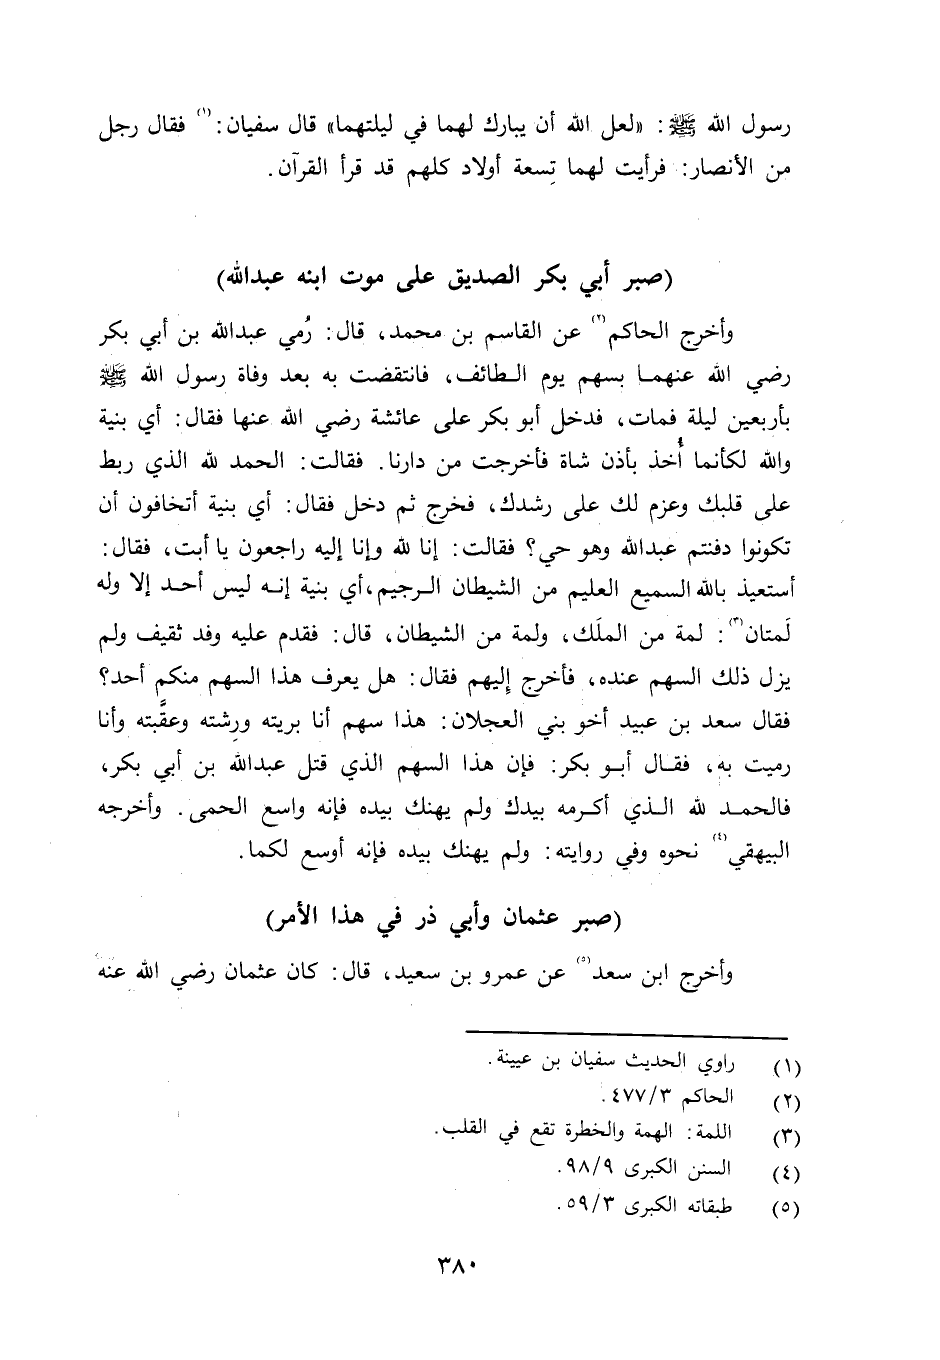 رسول الله ﷺ: «لعل الله أن يبارك لهما في ليلتهما» قال سفيان:(١) فقال رجل
من الأنصار: فرأيت لهما تِسعة أولاد كلهم قد قرأ القرآن.
(صبر أبي بكر الصديق على موت ابنه عبدالله)
وأخرج الحاكم(٢) عن القاسم بن محمد، قال: رُمي عبدالله بن أبي بكر
رضي الله عنهما بسهم يوم الطائف، فانتقضت به بعد وفاة رسول الله ﷺ
بأربعين ليلة فمات، فدخل أبو بكر على عائشة رضي الله عنها فقال: أي بنية
والله لكأنما أُخذ بأذن شاة فأخرجت من دارنا. فقالت: الحمد لله الذي ربط
على قلبك وعزم لك على رشدك، فخرج ثم دخل فقال: أي بنية أتخافون أن
تكونوا دفنتم عبدالله وهو حي؟ فقالت: إنا لله وإنا إليه راجعون يا أبت، فقال:
أستعيذ بالله السميع العليم من الشيطان الرجيم، أي بنية إنه ليس أحد إلا وله
لَمتان(٣): لمة من الملَك، ولمة من الشيطان، قال: فقدم عليه وفد ثقيف ولم
يزل ذلك السهم عنده، فأخرج إليهم فقال: هل يعرف هذا السهم منكم أحد؟
فقال سعد بن عبيد أخو بني العجلان: هذا سهم أنا بريته ورِشته وعقَّبته وأنا
رميت به، فقال أبو بكر: فإن هذا السهم الذي قتل عبدالله بن أبي بكر،
فالحمد لله الذي أكرمه بيدك ولم يهنك بيده فإنه واسع الحمى. وأخرجه
البيهقي(٤) نحوه وفي روايته: ولم يهنك بيده فإنه أوسع لكما.
(صبر عثمان وأبي ذر في هذا الأمر)
وأخرج ابن سعد(٥) عن عمرو بن سعيد، قال: كان عثمان رضي الله عنه
(١) راوي الحديث سفيان بن عيينة.
(٢) الحاكم ٤٧٧/٣.
(٣) اللمة: الهمة والخطرة تقع في القلب.
(٤) السنن الكبرى ٩٨/٩.
(٥) طبقاته الكبرى ٥٩/٣.
٣٨٠